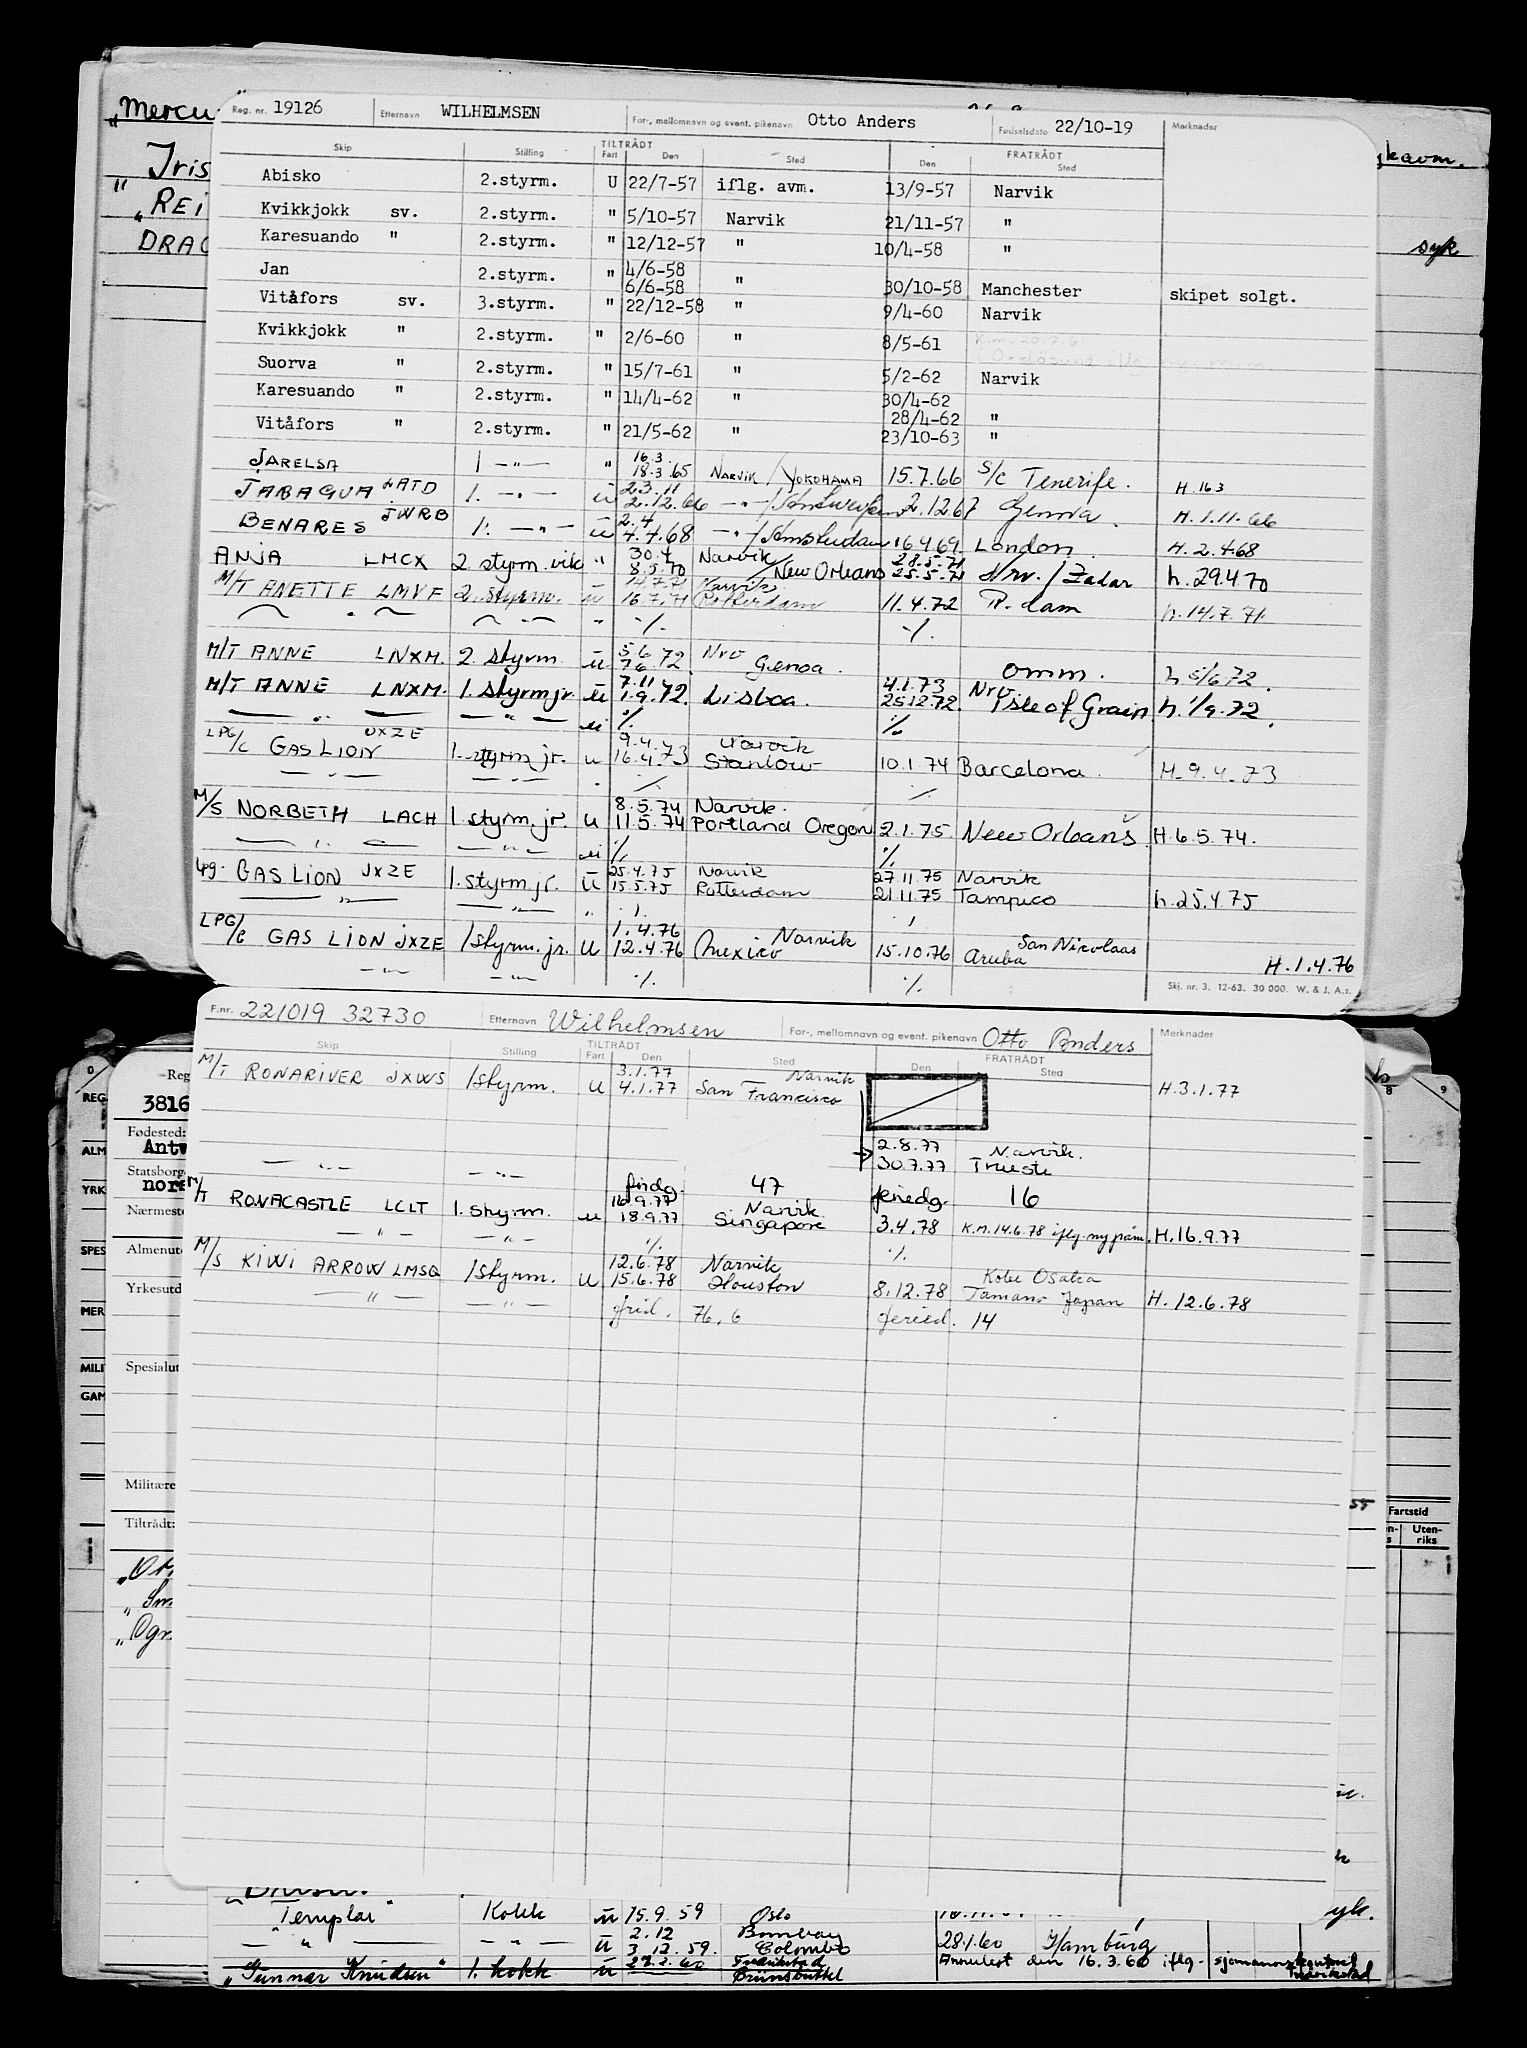 „Mercu
Reg. nr. 19126 Etternavn WILHELMSEN For-, mellomnavn og event. pikenavn Otto Anders Fødselsdato 22/10-19 Merknader
Skip Stilling TILTRÅDT Fart Den Sted FRATRÅDT Den Sted
„ Iris
„ REI
DRAG
syk
Abisko 2.styrm. U 22/7-57 iflg. avm. 13/9-57 Narvik
Kvikkjokk sv. 2.styrm. " 5/10-57 Narvik 21/11-57 "
Karesuando " 2.styrm. " 12/12-57 " 10/4-58 "
Jan 2.styrm. " 4/6-58
6/6-58 " 30/10-58 Manchester skipet solgt.
Vitåfors sv. 3.styrm. " 22/12-58 " 9/4-60 Narvik
Kvikkjokk " 2.styrm. " 2/6-60 " 8/5-61
Suorva " 2.styrm. " 15/7-61 " 5/2-62 Narvik
Karesuando " 2.styrm. " 14/4-62 " 30/4-62
28/4-62 "
Vitåfors " 2.styrm. " 21/5-62 " 23/10-63 "
JARELSA 1 -"- " 16.3.
18.3.65 NARVIK / YOKOHAMA 15.7.66 S/C Tenerife. H.163
JABAGUA LATD 1. -"- ū 23.11
2.12.66 -"- / Antwerpen 2.1267 Genova. H.1.11.66
BENARES JWRB 1. -"- ū 2.4
4.4.68 -"- / Amsterdam 16.4.69. London. H.2.4.68
ANJA LMCX 2 styrm. vik " 30.4
8.5.70 Narvik / New Orleans 28.5.71
25.5.71 Nrv. / Zadar h.29.4.70
M/T ANETTE LMVF 2. styrm. ū 14.7.71
16.7.71 Narvik
Rotterdam 11.4.72 R.dam h.14.7.71.
" " " ./. ./.
M/T ANNE LNXM. 2. styrm. ū 5.6.72
7.6.72. Nrv
Genoa. omm. h 5/6 72.
M/T ANNE LNXM. 1. styrm jr. ū 7.11
1.9.72. Lisboa. 4.1.73
25.12.72. Nrv
Isle of Grain h. 1/9.72.
-"- -"- ū ./. ./.
LPG/C GAS LION JXZE 1. styrm jr. u 9.4.
16.4.73 Narvik
Stanlow 10.1.74 Barcelona. H.9.4.73
-"- -"- " ./. ./.
M/S NORBETH LACH 1. styrm. jr. u 8.5.74
11.5.74 Narvik.
Portland Oregon 2.1.75. New Orleans H.6.5.74.
-"- -"- ū ./. ./.
lpg. GAS LION JXZE 1. styrm. jr. ū 25.4.75
15.5.75 Narvik
Rotterdam 27.11.75
21.11.75 Narvik
Tampico h.25.4.75
-"- -"- "
LPG/C GAS LION JXZE 1 styrm. jr. U 1.4.76
12.4.76 Narvik
Mexico 15.10.76 San Nicolaas
Aruba H.1.4.76
-"- -"- ./. ./.
Skj. nr. 3. 12-63. 30 000. W. & J. A.s.
F.nr. 221019 32730 Etternavn Wilhelmsen For-, mellomnavn og event. pikenavn Otto Anders Merknader
Skip Stilling TILTRÅDT Fart Den Sted FRATRÅDT Den Sted
M/T RONARIVER JXWS 1 styrm. U 3.1.77
4.1.77 Narvik
San Francisco H.3.1.77
-"- -"- 2.8.77
30.7.77 Narvik.
Trieste
fridg. 47 feriedg. 16
M/T RONACASTLE LCLT 1. styrm. u 16.9.77
18.9.77 Narvik.
Singapore 3.4.78 K.m. 14.6.78 iflg. ny påm. H.16.9.77
-"- -"- ./. ./.
M/S KIWI ARROW LMSQ 1 styrm. U 12.6.78
15.6.78 Narvik
Houston 8.12.78 Kobe Osaka
Tamano Japan H. 12.6.78
-"- -"- frid. 76,6 feried. 14
Reg
3816
Fødested:
Antw
Statsborg
nors
Nærmest
Almenut
Yrkesutd
Spesialut
Militære
Tiltrådt:
REG
ALM
YRK
SPES
MER
MILI
GAM
8 9
55
Fartstid
Uten-
riks
„Or
„Sn
„Ogr
„Templar" Kokk ū 15.9.59 Oslo yk.
-"- -"- ū 2.12
3.12.59. Bombay
Colombo 28.1.60 Hamburg
„Gunnar Knudsen" 1. kokk ū 29.2.60 Fredrikstad
Brünsbüttel Annulert den 16.3.60 iflg. sjømannskontoret
Fredrikstad